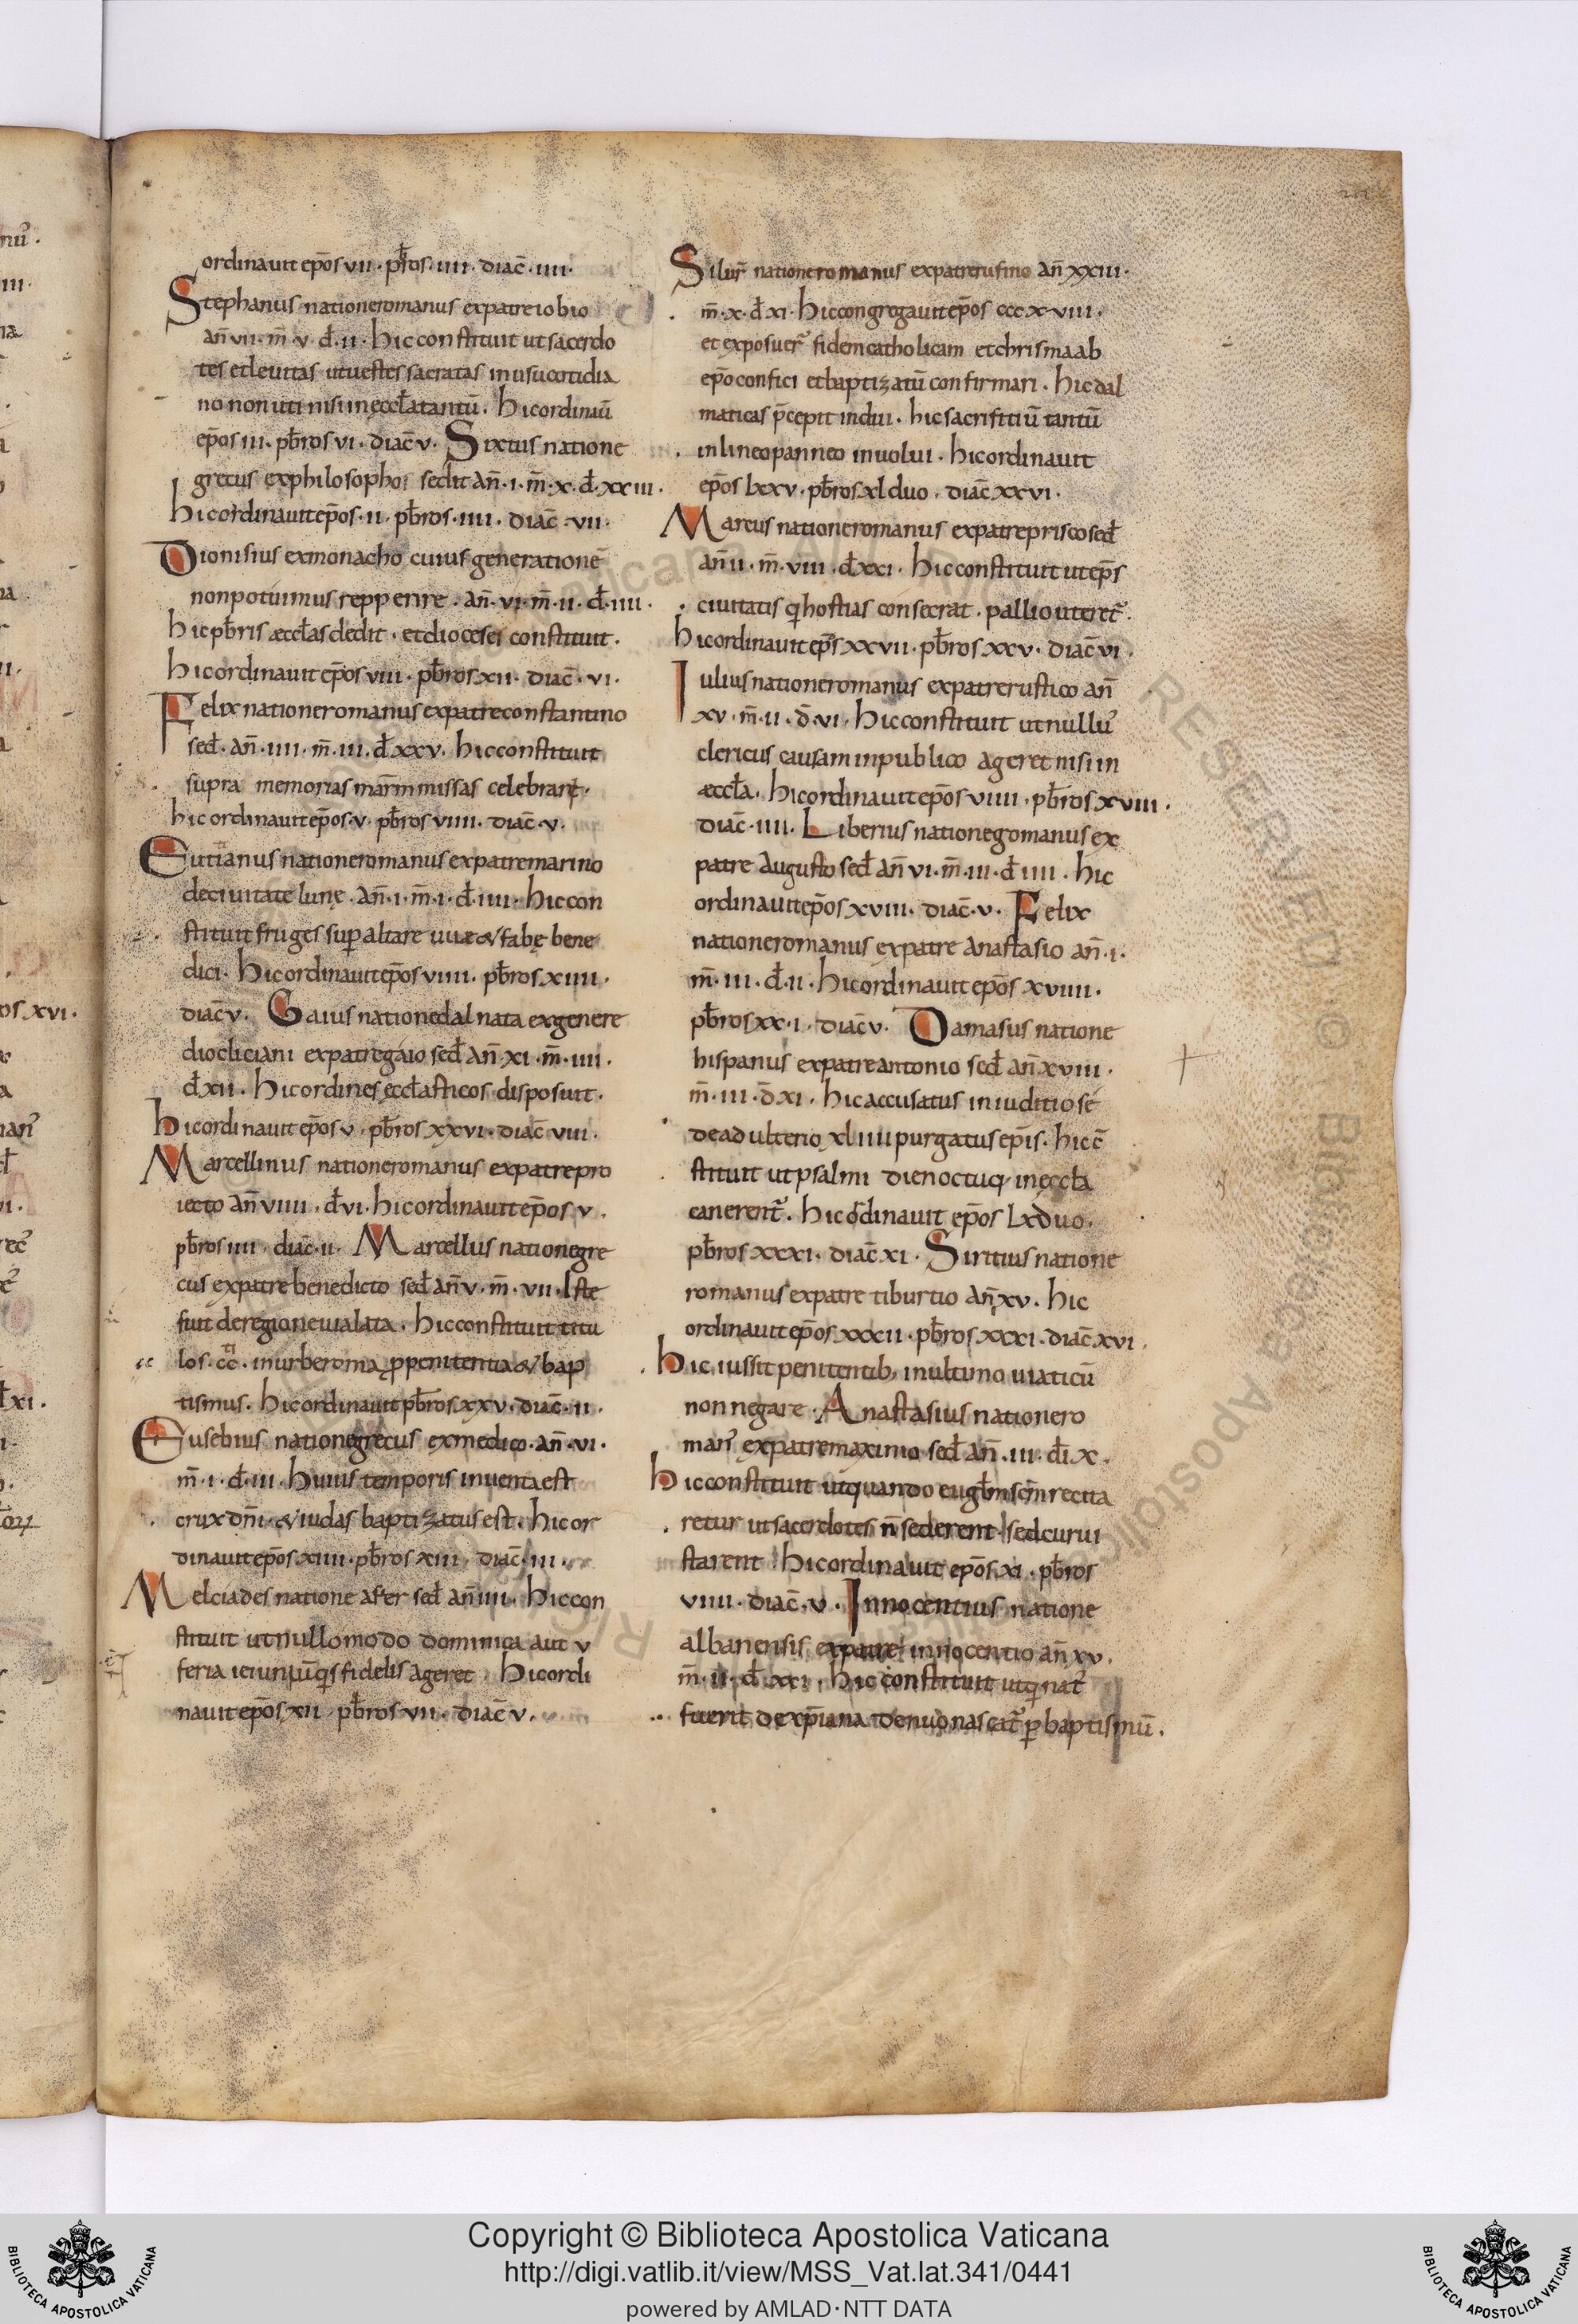 ordinauit ep̄os vii · pb̄ros · iiii · diac̄ · iiii ·
Stephanus natione romanus ex patre iobio
an̄ vii · m̄ · v · d̄ · ii · hic constituit ut sacerdo
tes et leuitas ut uestes sacratas in usu cotidia
no non uti nisi in ęccl̄a tantū · hic ordinau̅
ep̄os iii · pb̄ros vi · diac̄ v · Sixtus natione
grecus ex philosopho sedit an̄ · i · m̄ · x · d̄ · xxiii ·
hic ordinauit ep̄os · ii · pb̄ros · iiii · diac̄ · vii ·
Dionisius ex monacho cuius generatione̅
non potuimus repperire · an̄ · vi · m̄ · ii · d̄ · iiii ·
hic pb̄ris æccl̄as dedit · et dioceses constituit ·
hic ordinauit ep̄os viii · pb̄ros xii · diac̄ · vi ·
Felix natione romanus ex patre constantino
sed̄ · an̄ · iiii · m̄ · iii · d̄ xxv · hic constituit
supra memorias mar̄m missas celebrare ·
hic ordinauit ep̄os · v · pb̄ros viiii · diac̄ · v ·
Eutianus natione romanus ex patre marino
de ciuitate lunę · an̄ · i · m̄ · i · d̄ · iiii · hic con
stituit fruges sup altare uuæ & fabę bene
dici · hic ordinauit ep̄os viiii · pb̄ros xiiii ·
diac̄ v · Gaius natione dalnata ex genere
diocliciani ex patre gaio sed̄ an̄ xi · m̄ · iiii ·
d̄ xii · hic ordines ęccl̄asticos disposuit ·
hic ordinauit ep̄os v · pb̄ros xxvi · diac̄ viii ·
Marcellinus natione romanus ex patre pro
iecto an̄ viiii · d̄ vi · hic ordinauit ep̄os v ·
pb̄ros iiii · diac̄ · ii · Marcellus natione gre
cus ex patre benedicto sed̄ an̄ v · m̄ · vii · Iste
fuit de regione uialata · hic constituit titu
los · cc̄ · in urbe roma ꝓ penitentia & bap
tismus · hic ordinauit pb̄ros xxv · diac̄ · ii ·
Eusebius natione grecus ex medico · an̄ · vi ·
m̄ · i · d̄ · iii · huius temporis inuenta est
crux dn̄i · & iudas baptizatus est · hic or
dinauit ep̄os xiiii · pb̄ros xiii · diac̄ · iii ·
Melciades natione afer sed̄ an̄ iiii · hic con
stituit ut nullo modo dominica aut v
feria ieiuniu̅ q̄s fidelis ageret · hic ordi
nauit ep̄os xii · pb̄ros vii · diac̄ v ·
Silur̄ natione romanus ex patre rufino an̄ xxiii ·
m̄ · x · d̄ xi · hic congregauit ep̄os cccxviii ·
et exposuer̄ fidem catholicam et chrisma ab
ep̄o confici et baptizatū confirmari · hic dal
maticas p̄cepit indui · hic sacrifitiū tantū
in lineo panneo inuolui · hic ordinauit
ep̄os lxxv · pb̄ros xl duo · diac̄ xxvi ·
Marcus natione romanus ex patre prisco sed̄
an̄ ii · m̄ · viii · d̄ xxi · hic constituit ut ep̄s
ciuitatis q hostias consecrat · pallio uteret̄ ·
hic ordinauit ep̄s xxvii · pb̄ros xxv · diac̄ vi ·
Iulius natione romanus ex patre rustico an̄
xv · m̄ · ii · d̄ · vi · hic constituit ut nullu᷒
clericus causam in publico ageret nisi in
æccl̄a · hic ordinauit ep̄os viiii · pb̄ros xviii ·
diac̄ · iiii · Liberius natione gomanus ex
patre augusto sed̄ an̄ vi · m̄ · iii · d̄ iiii · hic
ordinauit ep̄os xviii · diac̄ · v · Felix
natione romanus ex patre anastasio an̄ · i ·
m̄ · iii · d̄ · ii · hic ordinauit ep̄os xviiii ·
pb̄ros xx · i · diac̄ v · Damasus natione
hispanus ex patre antonio sed̄ an̄ xviii ·
m̄ · iii · d̄ xi · hic accusatus in iuditio se
de adulterio xliiii purgatus ep̄is · hic c̄
stituit ut psalmi die noctuq; in ęccl̄a
canerent̄ · hic ordinauit ep̄os lxduo ·
pb̄ros xxxi · diac̄ xi · Siritius natione
romanus ex patre tiburtio an̄ xv · hic
ordinauit ep̄os xxxii · pb̄ros xxxi · diac̄ xvi ·
hic iussit penitentib; in ultimo uiaticū
non negare · Anastasius natione ro
man᷒ ex patre maximo sed̄ an̄ · iii · d̄i x ·
hic constituit ut quando eug̅lm sc̄m recita
retur ut sacerdotes n̄ sederent · sed curui
starent · hic ordinauit ep̄os xi · pb̄ros
viiii · diac̄ · v · Innocentius natione
albanensis ex patre innocentio an̄ xv ·
m̄ · ii · d̄ xxi · hic constituit ut q nat᷒
fuerit de xp̄iana denuo nascat̄ ꝑ baptismū ·
Copyright © Biblioteca Apostolica Vaticana
http://digi.vatlib.it/view/MSS_Vat.lat.341/0441
powered by AMLAD·NTT DATA
BIBLIOTECA APOSTOLICA VATICANA
BIBLIOTECA APOSTOLICA VATICANA